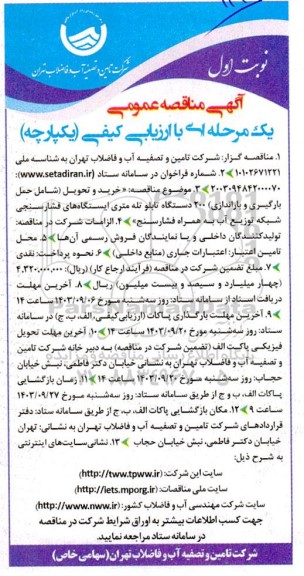 شرکت تامین و تصفیه آب و فاضلاب تهران
نوبت اول
آگهی مناقصه عمومی
یک مرحله ای با ارزیابی کیفی (یکپارچه)
۱. مناقصه گزار: شرکت تامین و تصفیه آب و فاضلاب تهران به شناسه ملی
۱۰۱۰۲۶۷۱۲۲۱ ۲. شماره فراخوان در سامانه ستاد (www.setadiran.ir):
۲۰۰۳۰۹۴۸۴۲۰۰۰۰۷۰ ۳. موضوع مناقصه: «خرید و تحویل (شامل حمل
بارگیری و باراندازی) ۲۰۰ دستگاه تابلو تله متری ایستگاه‌های فشارسنجی
شبکه توزیع آب به همراه فشارسنج» ۴. الزامات شرکت در مناقصه:
تولیدکنندگان داخلی و یا نمایندگان فروش رسمی آن‌ها ۵. محل
تامین اعتبار: اعتبارات جاری (منابع داخلی) ۶. نحوه پرداخت: نقدی
۷. مبلغ تضمین شرکت در مناقصه (فرآیند ارجاع کار) (ریال): ۴.۳۲۰.۰۰۰.۰۰۰
(چهار میلیارد و سیصد و بیست میلیون) ریال ۸. آخرین مهلت
دریافت اسناد از سامانه ستاد: روز سه‌شنبه مورخ ۱۴۰۳/۰۹/۰۶ ساعت ۱۴
۹. آخرین مهلت بارگذاری پاکات (ارزیابی کیفی، الف، ب، ج) در سامانه
ستاد: روز سه‌شنبه مورخ ۱۴۰۳/۰۹/۲۰ ساعت ۱۴ ۱۰. آخرین مهلت تحویل
فیزیکی پاکت الف (تضمین شرکت در مناقصه) به دبیر خانه شرکت تامین
و تصفیه آب و فاضلاب تهران به نشانی خیابان دکتر فاطمی، نبش خیابان
حجاب: روز سه‌شنبه مورخ ۱۴۰۳/۰۹/۲۰ ساعت ۱۴ ۱۱. زمان بازگشایی
پاکات الف، ب و ج از طریق سامانه ستاد: روز سه‌شنبه مورخ ۱۴۰۳/۰۹/۲۷
ساعت ۹ ۱۲. مکان بازگشایی پاکات الف، ب، ج از طریق سامانه ستاد: دفتر
قراردادهای شرکت تامین و تصفیه آب و فاضلاب تهران به نشانی: تهران
خیابان دکتر فاطمی، نبش خیابان حجاب ۱۳. نشانی‌سایت‌های اینترنتی
به شرح ذیل:
سایت این شرکت: (http://tww.tpww.ir)
سایت ملی مناقصات: (http://iets.mporg.ir)
سایت شرکت مهندسی آب و فاضلاب کشور: (http://www.nww.ir)
جهت کسب اطلاعات بیشتر به اوراق شرایط شرکت در مناقصه
در سامانه ستاد مراجعه نمایید.
شرکت تامین و تصفیه آب و فاضلاب تهران (سهامی خاص)